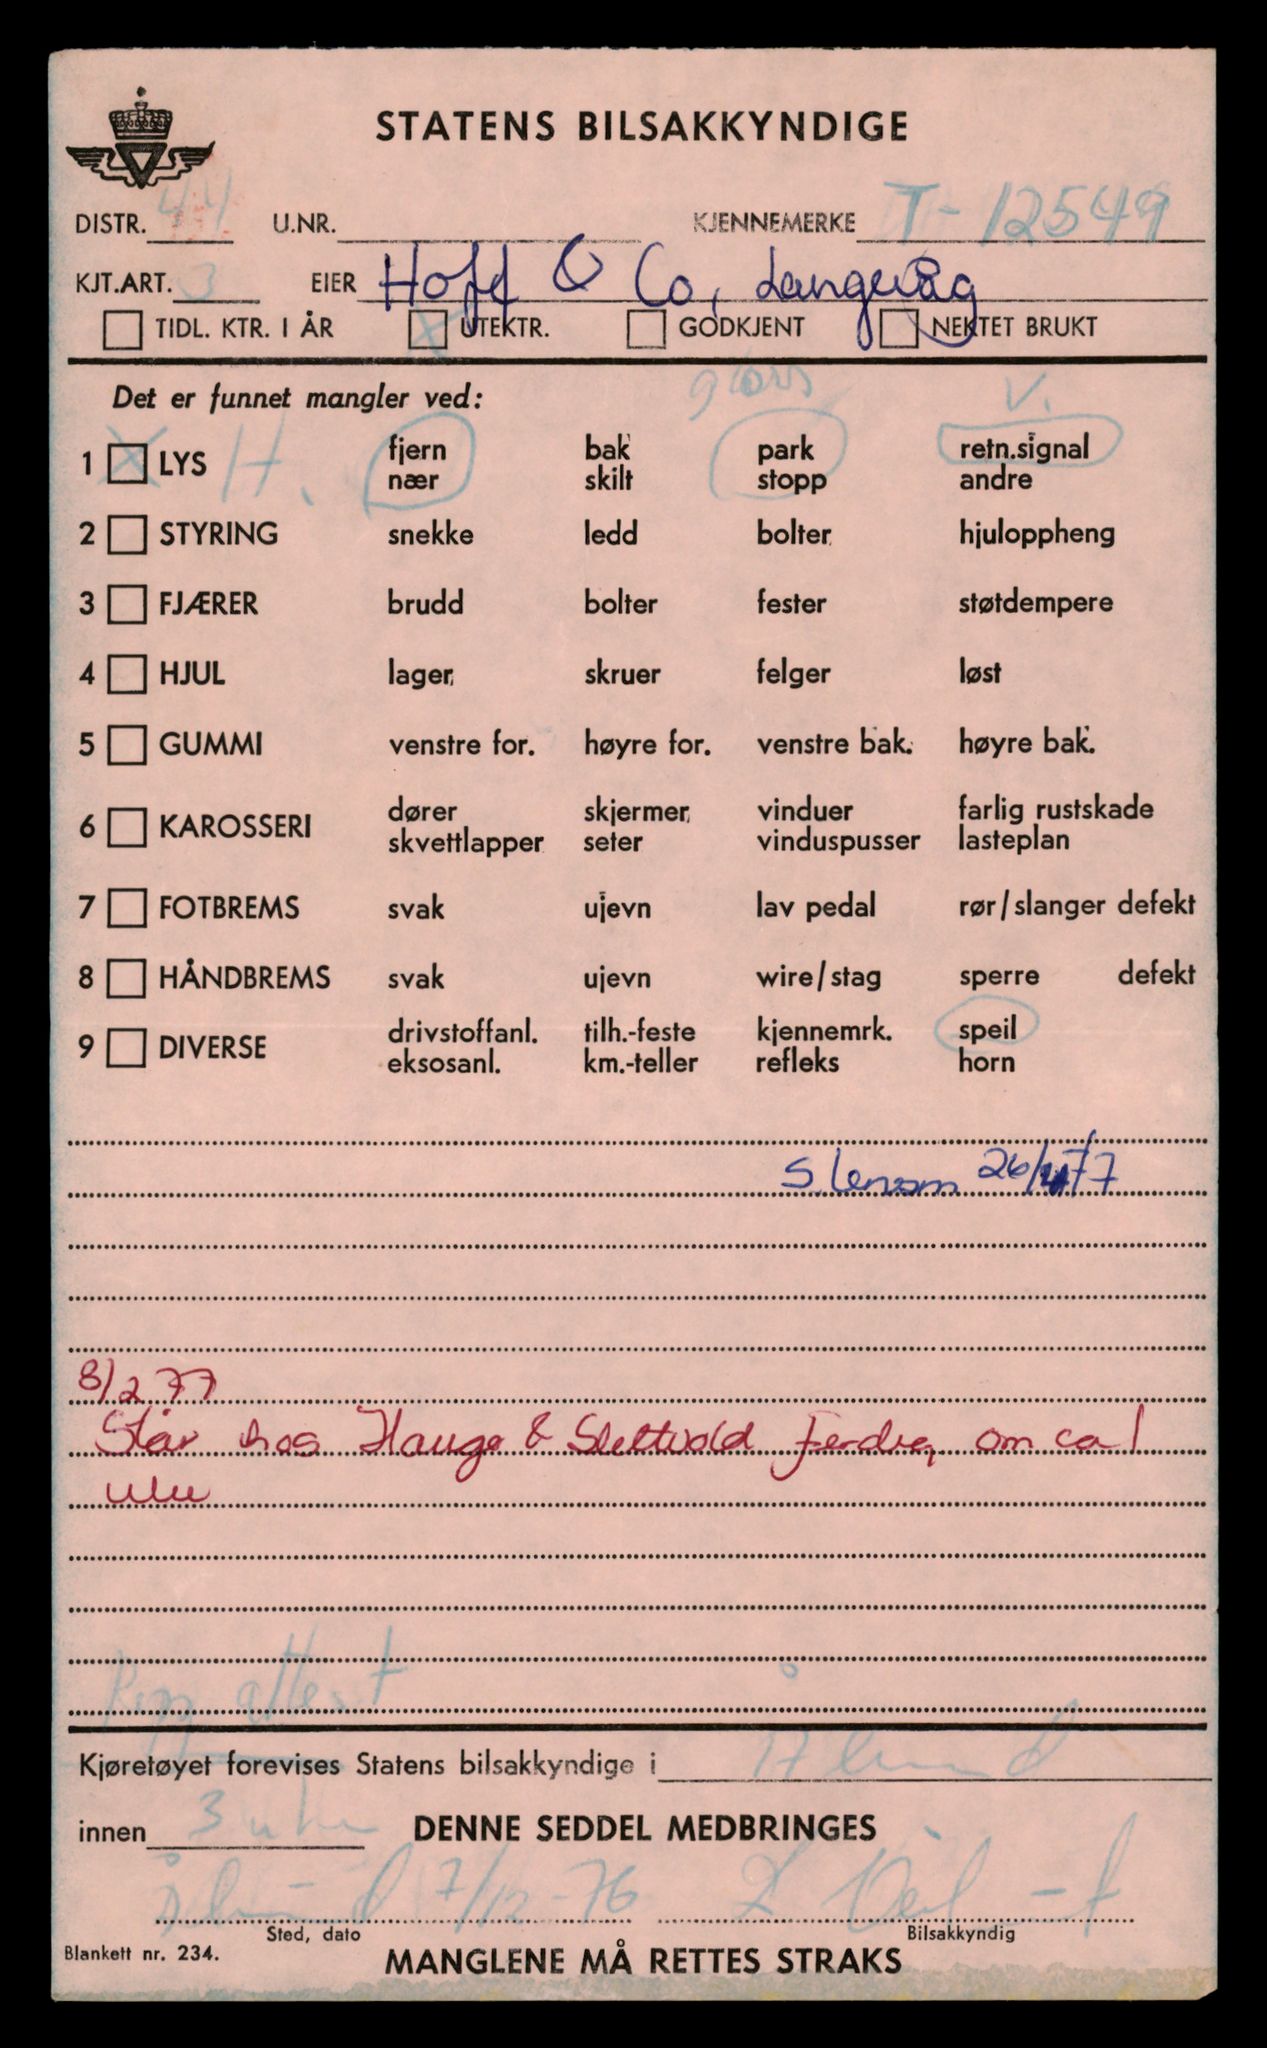 STATENS BILSAKKYNDIGE
DISTR. 44 U.NR. KJENNEMERKE T-12549
KJT.ART. 3 EIER Hoff & Co, Langevåg
TIDL. KTR. I ÅR X UTEKTR. GODKJENT NEKTET BRUKT
glass V.
Det er funnet mangler ved:
1 X LYS H. fjern bak park retn.signal
nær skilt stopp andre
2 STYRING snekke ledd bolter hjuloppheng
3 FJÆRER brudd bolter fester støtdempere
4 HJUL lager skruer felger løst
5 GUMMI venstre for. høyre for. venstre bak. høyre bak.
6 KAROSSERI dører skjermer vinduer farlig rustskade
skvettlapper seter vinduspusser lasteplan
7 FOTBREMS svak ujevn lav pedal rør/slanger defekt
8 HÅNDBREMS svak ujevn wire/stag sperre defekt
9 DIVERSE drivstoffanl. tilh.-feste kjennemrk. speil
eksosanl. km.-teller refleks horn
26/4/77
8/2 77
Står hos Hauge & Slettvold ferdig om ca 1
uke
Rep attest
Kjøretøyet forevises Statens bilsakkyndige i Ålesund
innen 3 uker DENNE SEDDEL MEDBRINGES
Ålesund 7/12-76
Sted, dato Bilsakkyndig
Blankett nr. 234. MANGLENE MÅ RETTES STRAKS